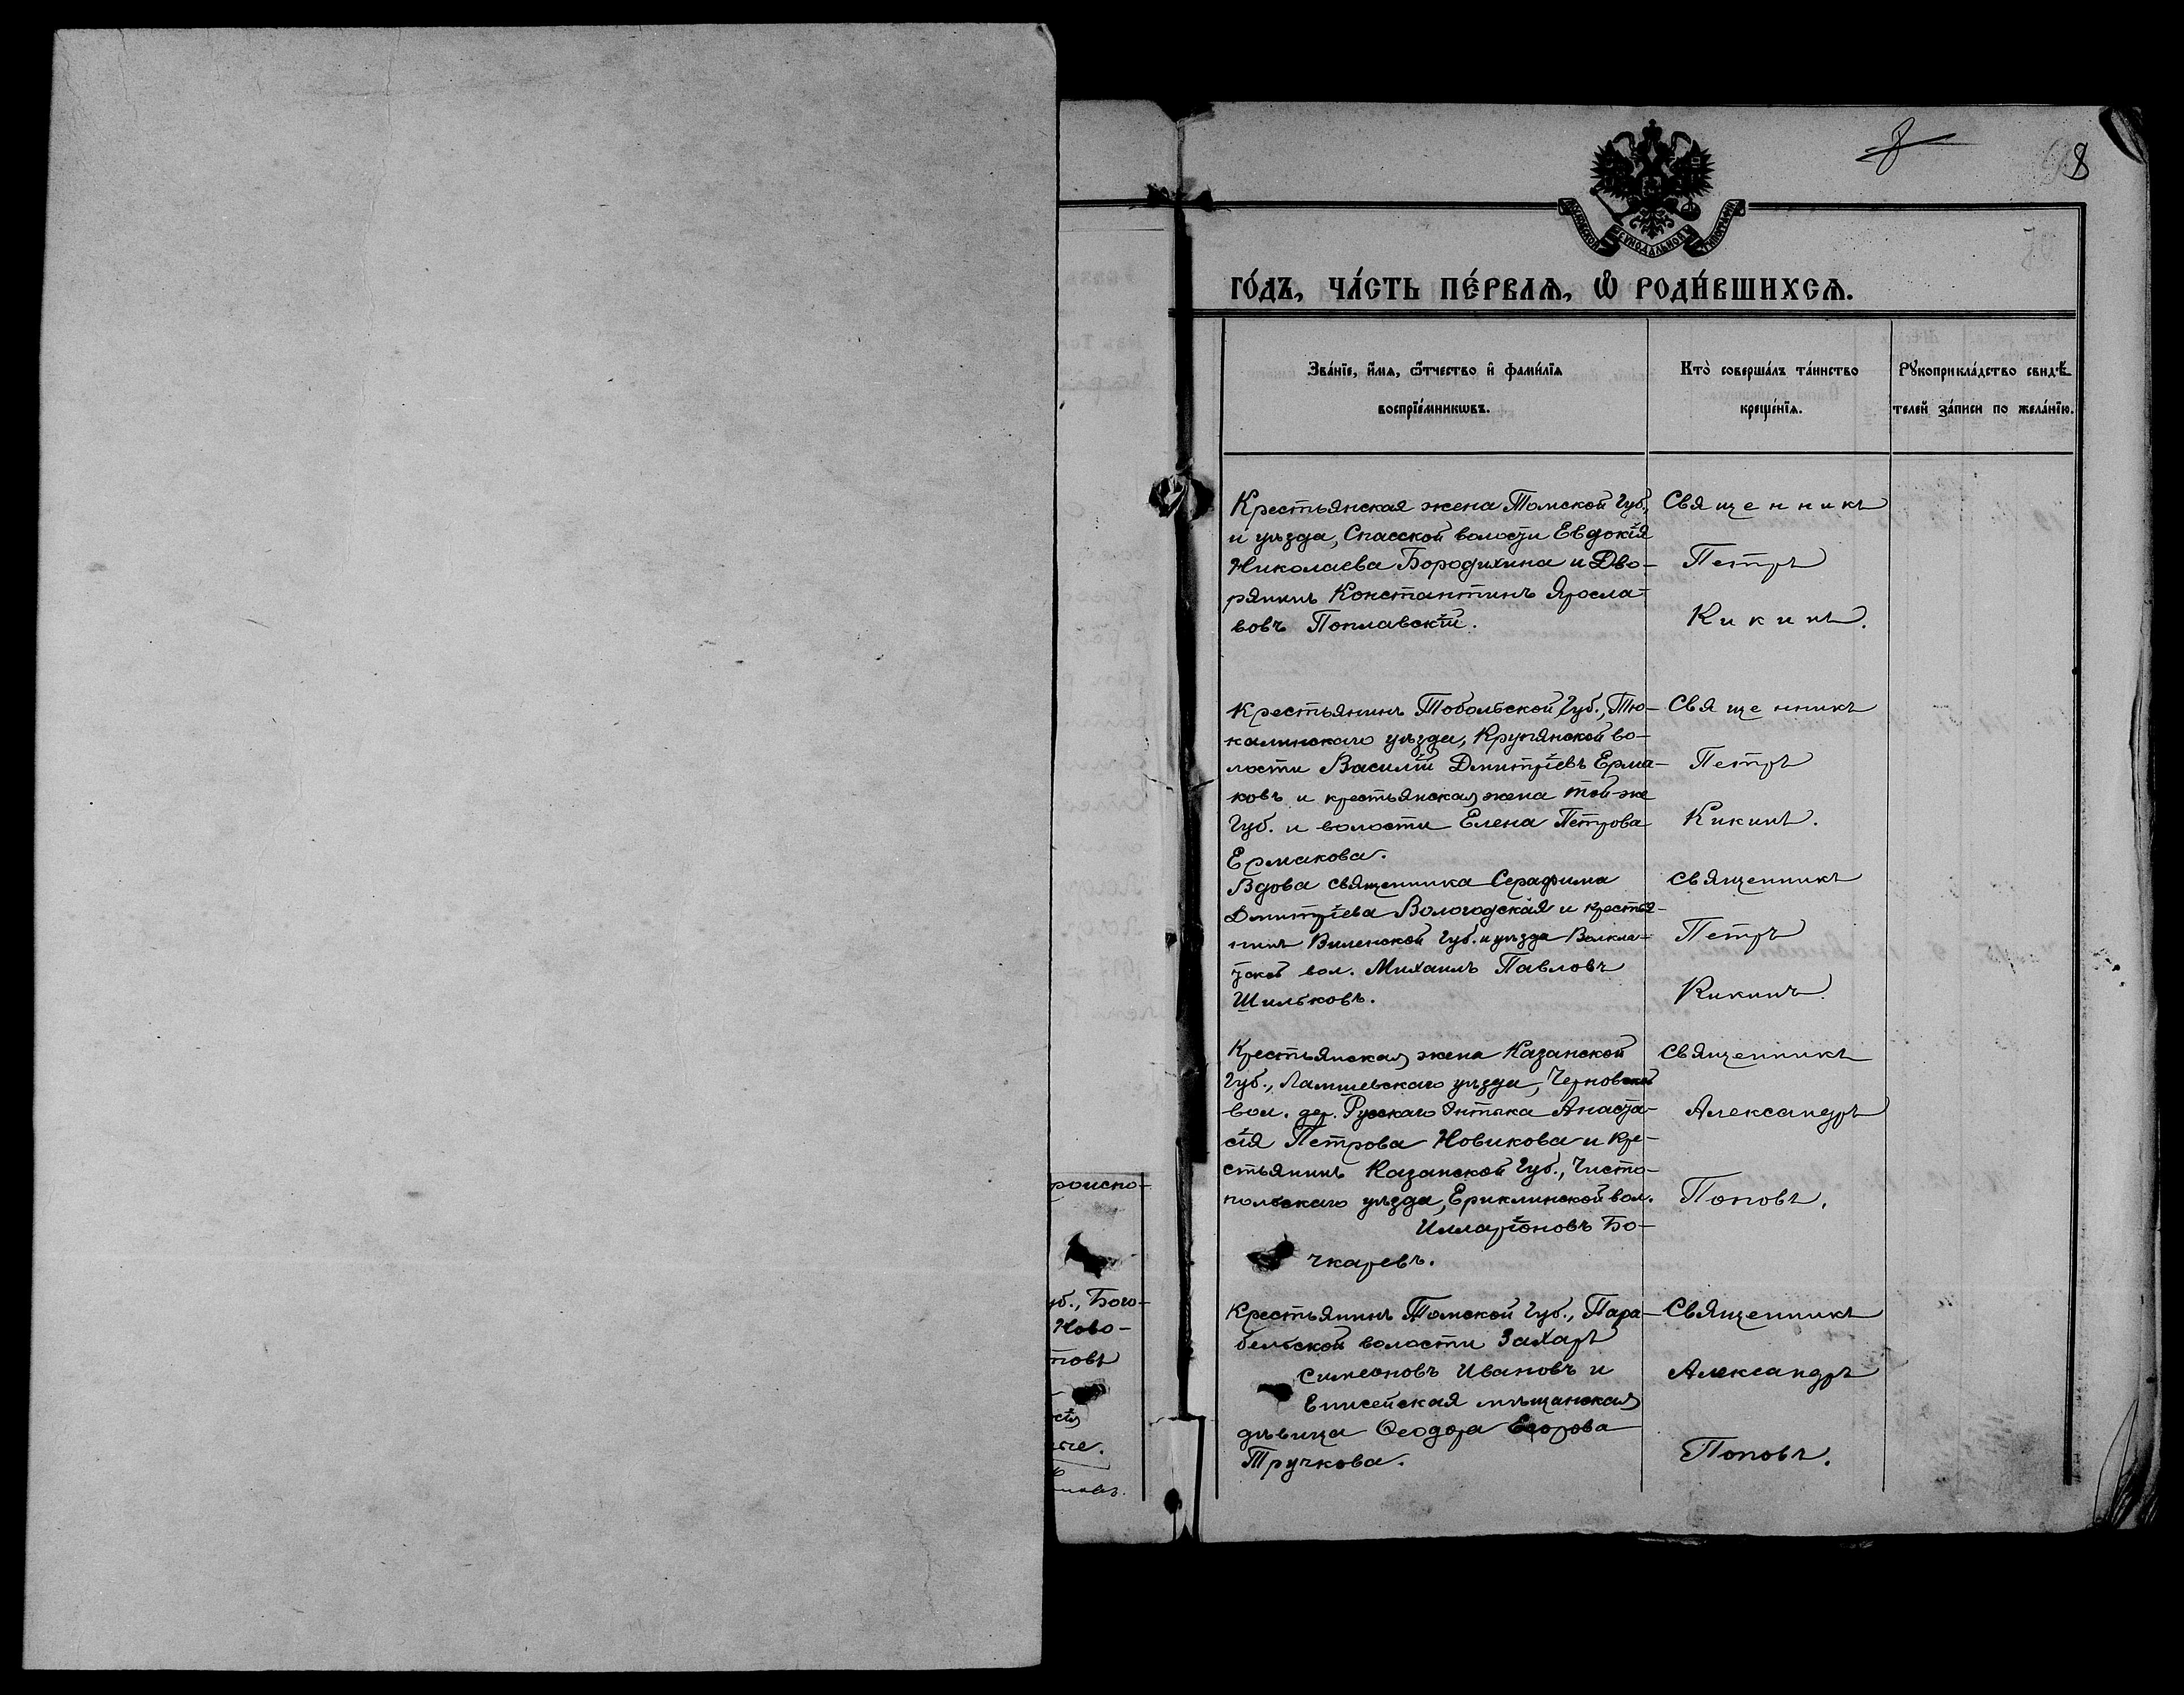 8
8
МОСКОВСКОЙ СѴНОДАЛЬНОЙ ТИПОГРАФІИ
ГО́ДЪ, ЧА́СТЬ ПЕ́РВАѦ, Ѽ РОДИ́ВШИХСѦ.
Зва́нїе, и҆́мѧ, ѻ҆́тчество и҆ фами́лїѧ
воспрїе́мникѡвъ.
Кто̀ соверша́лъ та́инство
креще́нїѧ.
Рꙋкоприкла́дство свидѣ́-
телей за́писи по жела́нїю.
Крестьянская жена Томской Губ.,
и уѣзда, Спасской волости Евдокія
Николаева Бородихина и Дво-
рянинъ Константинъ Яросла-
вовъ Поплавскій.
Священникъ
Петръ
Кикинъ.
Крестьянинъ Тобольской Губ., Тю-
калинскаго уѣзда, Крупянской во-
лости Василій Дмитріевъ Ерма-
ковъ и крестьянская жена той-же
Губ. и волости Елена Петрова
Ермакова.
Священникъ
Петръ
Кикинъ.
Вдова священника Серафима
Дмитріева Вологодская и крестья-
нинъ Виленской Губ. и уѣзда
вол. Михаилъ Павловъ
Шильковъ.
Священникъ
Петръ
Кикинъ.
Крестьянская жена Казанской
Губ., Лаишевскаго уѣзда, Черновской
вол. дер. Русскаго Янтыка Анаста-
сія Петрова Новикова и кре-
стьянинъ Казанской Губ., Чисто-
польскаго уѣзда, Ериклинской вол.
Илларіоновъ Бо-
чкаревъ.
Священникъ
Александръ
Поповъ.
Крестьянинъ Томской Губ., Пара-
бельской волости Захаръ
Симеоновъ Ивановъ и
Енисейская мѣщанская
дѣвица Ѳеодора Егорова
Тручкова.
Священникъ
Александръ
Поповъ.
роиспо-
уб., Бого-
Ново-
товъ